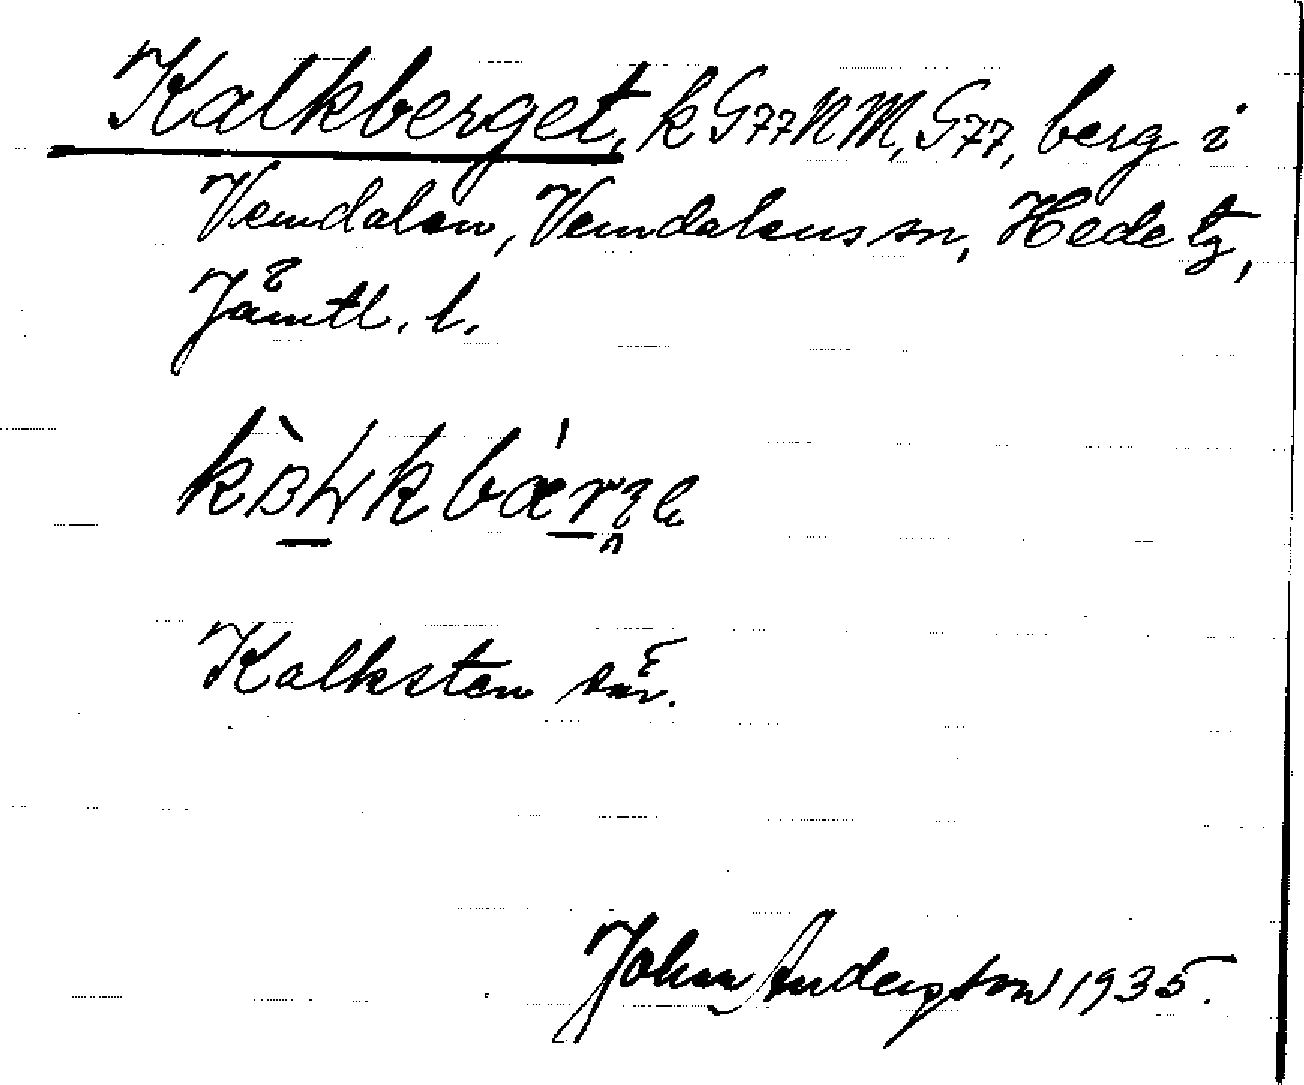 Kalkberget, k G77NM, G77, berg i
Vemdalen, Vemdalens sn, Hede tg,
Jämtl. l.
Kalksten där.
John Anderson 1935.